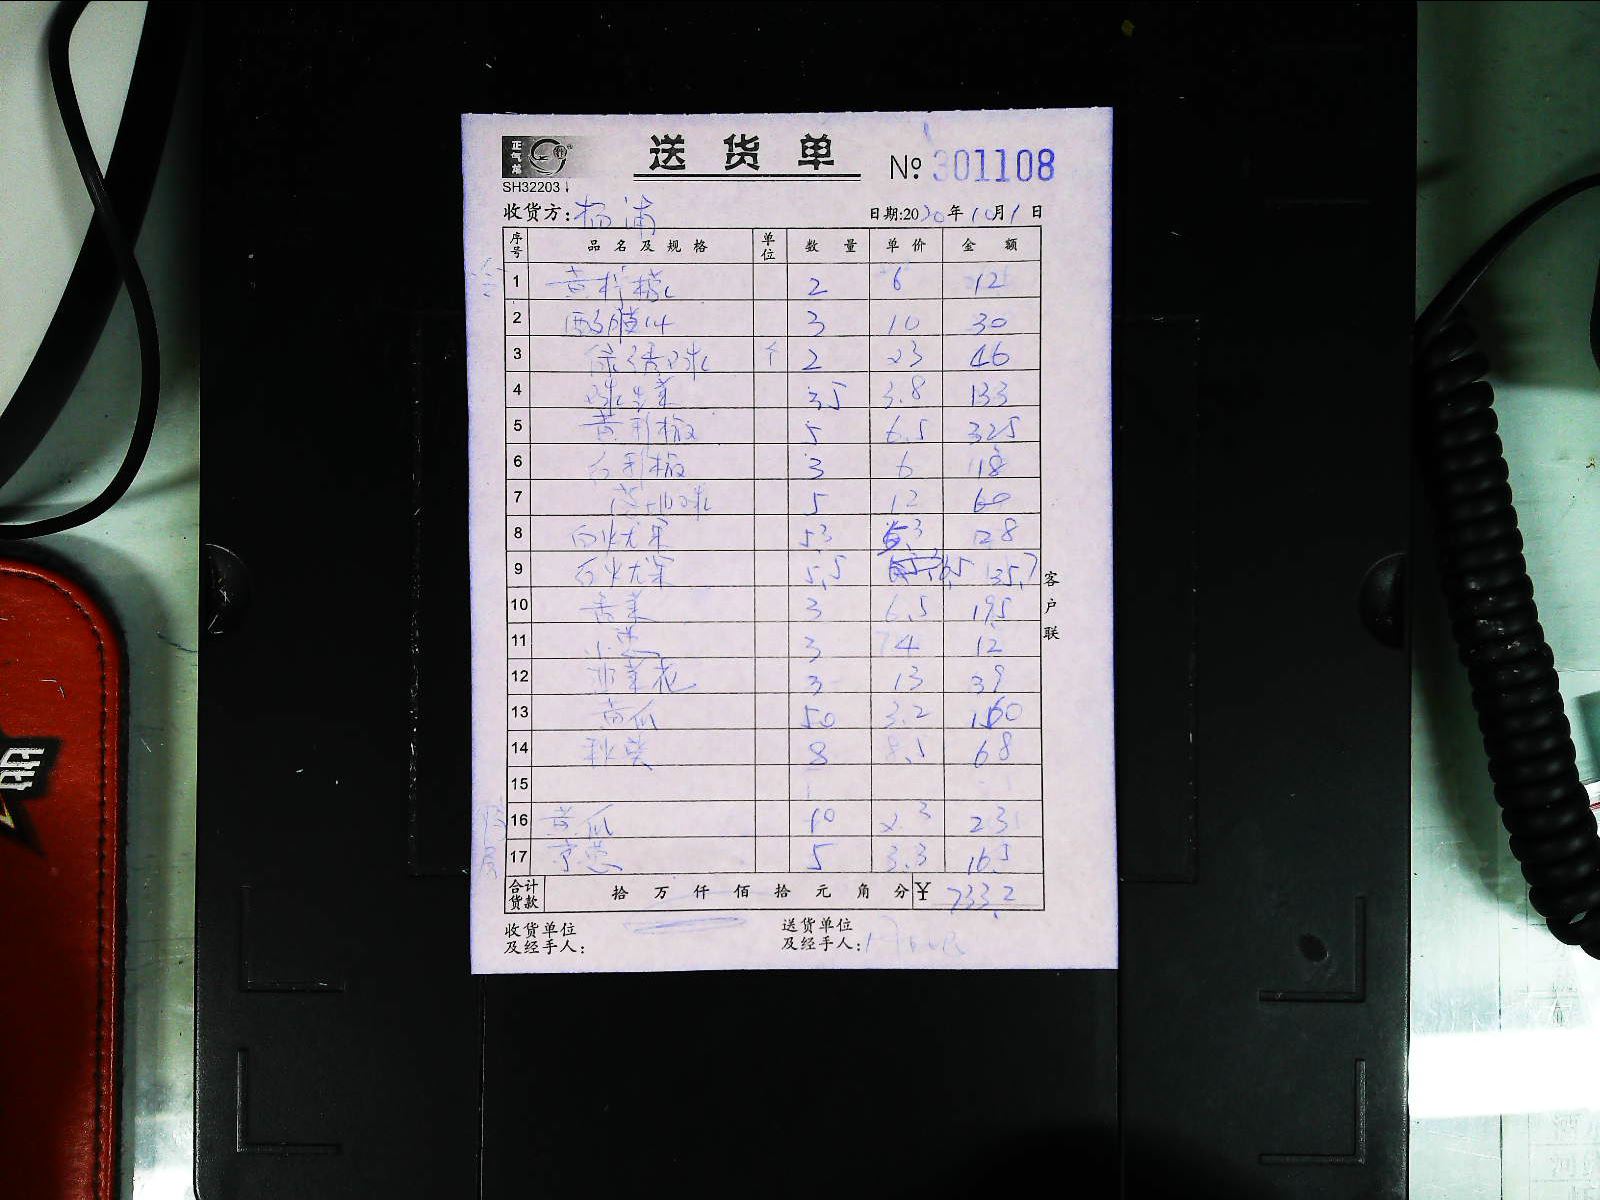 正气龙
送货单
№ 301108
SH32203
收货方: 杨浦
日期:2020年10月1日
序号 品名及规格 单位 数量 单价 金额
1 黄柠檬 2 6 12
2 3 10 30
3 个 2 23 46
4 球生菜 35 3.8 133
5 黄彩椒 5 6.5 32.5
6 3 6 18
7 5 12 60
8 白火尤果 53
9 白火尤果 5.5 135.7
10 香菜 3 6.5 19.5
11 小葱 3 4 12
12 3 13 39
13 黄瓜 50 3.2 160
14 秋葵 8 8.5 68
15
16 黄瓜 10 2.3 23
17 京葱 5 3.3 16.5
合计货款 拾 万 仟 佰 拾 元 角 分 ¥ 733.2
收货单位及经手人:
送货单位及经手人:
客户联